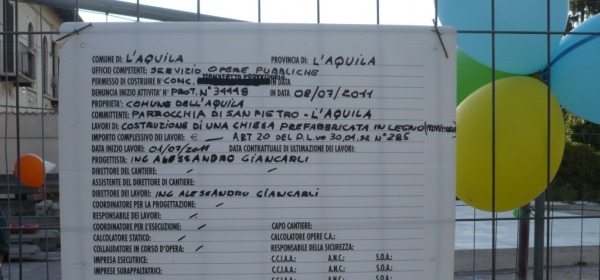 COMUNE DI: L'AQUILA PROVINCIA DI: L'AQUILA
UFFICIO COMPETENTE: SERVIZIO OPERE PUBBLICHE
PERMESSO DI COSTRUIRE N° CONC. IN DATA
DENUNCIA INIZIO ATTIVITA' N° PROT. N° 31118 IN DATA 08/07/2011
PROPRIETA': COMUNE DELL'AQUILA
COMMITTENTE: PARROCCHIA DI SAN PIETRO - L'AQUILA
LAVORI DI: COSTRUZIONE DI UNA CHIESA PREFABBRICATA IN LEGNO
IMPORTO COMPLESSIVO DEI LAVORI: € — ART 20 DEL D.L.vo 30.01.92 N° 285
DATA INIZIO LAVORI: 04/07/2011 DATA CONTRATTUALE DI ULTIMAZIONE DEI LAVORI:
PROGETTISTA: ING ALESSANDRO GIANCARLI
DIRETTORE DEL CANTIERE: /
ASSISTENTE DEL DIRETTORE DI CANTIERE:
DIRETTORE DEI LAVORI: ING ALESSANDRO GIANCARLI
COORDINATORE PER LA PROGETTAZIONE: /
RESPONSABILE DEI LAVORI: /
COORDINATORE PER L'ESECUZIONE: / CAPO CANTIERE:
CALCOLATORE STATICO: / CALCOLATORE OPERE C.A.:
COLLAUDATORE IN CORSO D'OPERA: / RESPONSABILE DELLA SICUREZZA:
IMPRESA ESECUTRICE: C.C.I.A.A.: A.N.C.: S.O.A.:
IMPRESE SUBAPPALTATRICI: C.C.I.A.A.: A.N.C.: S.O.A.: